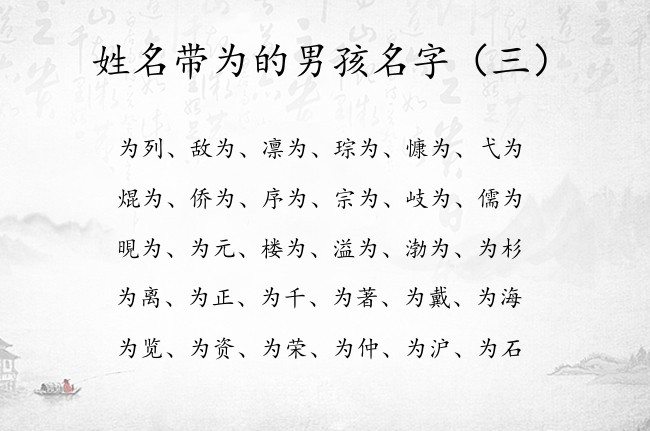 姓名带为的男孩名字（三）
为列、敌为、凛为、琮为、慷为、弋为
焜为、侨为、序为、宗为、岐为、儒为
晛为、为元、楼为、溢为、渤为、为杉
为离、为正、为千、为著、为戴、为海
为览、为资、为荣、为仲、为沪、为石